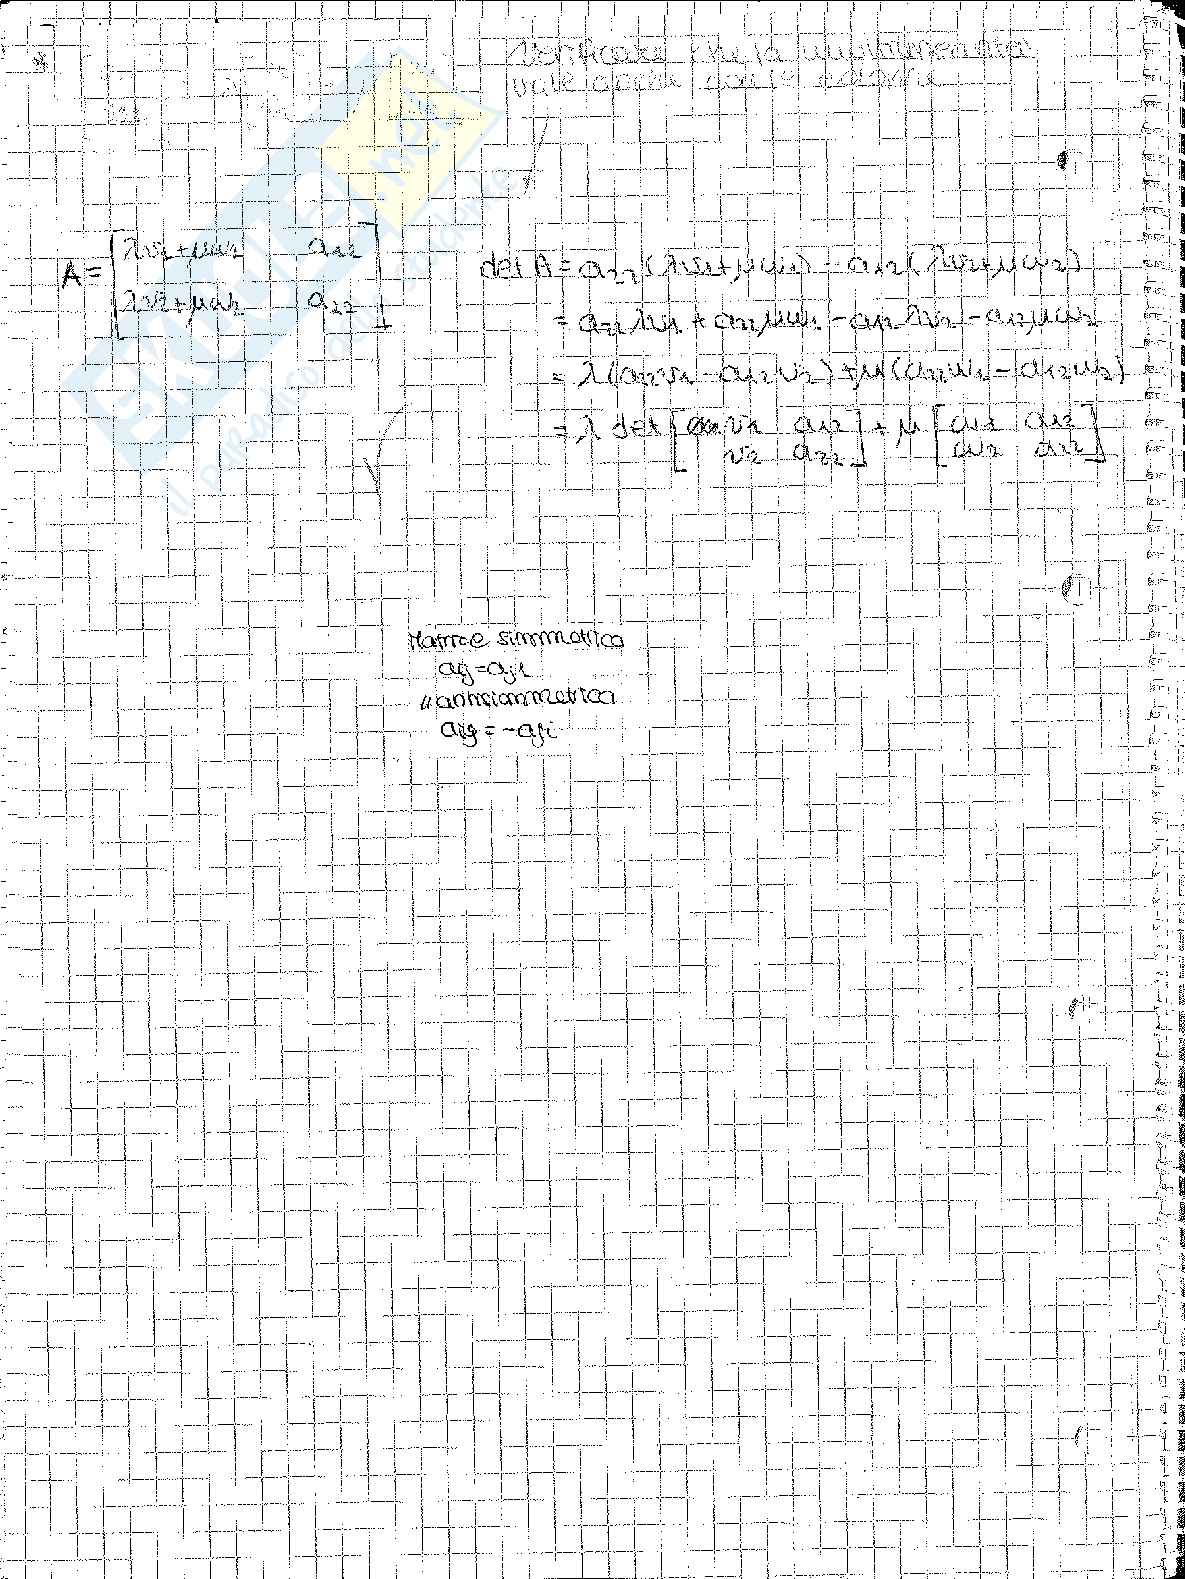 Verificare che la multilinearità
vale anche con le colonne
A = [λv₁+μw₁ a₁₂
λv₂+μw₂ a₂₂]
det A = a₂₂(λv₁+μw₁) - a₁₂(λv₂+μw₂)
= a₂₂λv₁ + a₂₂μw₁ - a₁₂λv₂ - a₁₂μw₂
= λ(a₂₂v₁ - a₁₂v₂) + μ(a₂₂w₁ - a₁₂w₂)
= λ det [v₁ a₁₂ + μ [w₁ a₁₂
v₂ a₂₂] w₂ a₂₂]
Matrice simmetrica
aij = aji
" antisimmetrica
aij = -aji